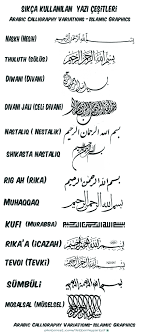 SIKÇA KULLANILAN YAZI ÇEŞİTLERİ
ARABIC CALLIGRAPHY VARIATIONS-ISLAMIC GRAPHICS
NASKH (NESIH)
THULUTH (SÜLÜS) بسم الله الرحمن الرحيم
DIWANI (DIVANI)
DIVANI JALI (CELI DIVANI)
NASTALIQ ( NESTALIK) بسم الله الرحمن الرحيم
SHIKASTA NASTALIQ
RIQ AH (RIKA) بسم الله الرحمن الرحيم
MUHAQQAQ بسم الله الرحمن الرحيم
KUFI (MURABBA)
RIKA'A (ICAZAH) بسم الله الرحمن الرحيم
TEVQI (TEVKI) بسم الله الرحمن الرحيم
SÜMBÜLI
MOSALSAL (MÜSELSEL)
ARABIC CALLIGRAPHY VARIATIONS-ISLAMIC GRAPHICS